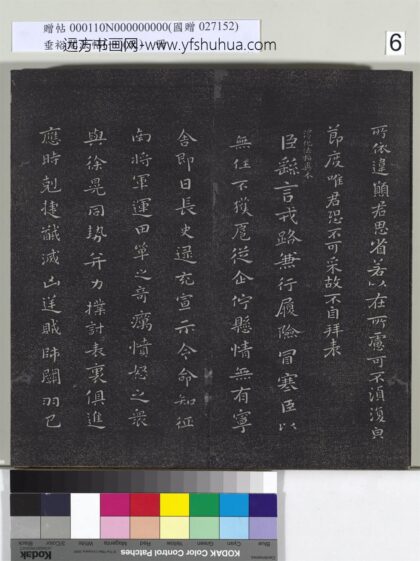 贈帖 000110N000000000(國贈 027152)
远方书画网-www.yfshuhua.com
6
所依違願君思省若以在所慮可不須復皃
節度唯君恐不可采故不自拜表
臣繇言戎路兼行履險冒寒臣以
無任不獲扈從企佇懸情無有寧
舍即日長史逯充宣示令命知征
南將軍運田單之奇厲憤怒之衆
與徐晃同勢并力撲討表裏俱進
應時剋捷馘滅凶逆賊帥關羽已
KODAK Color Control Patches
Blue Cyan Green Yellow Red Magenta White 3/Color Black